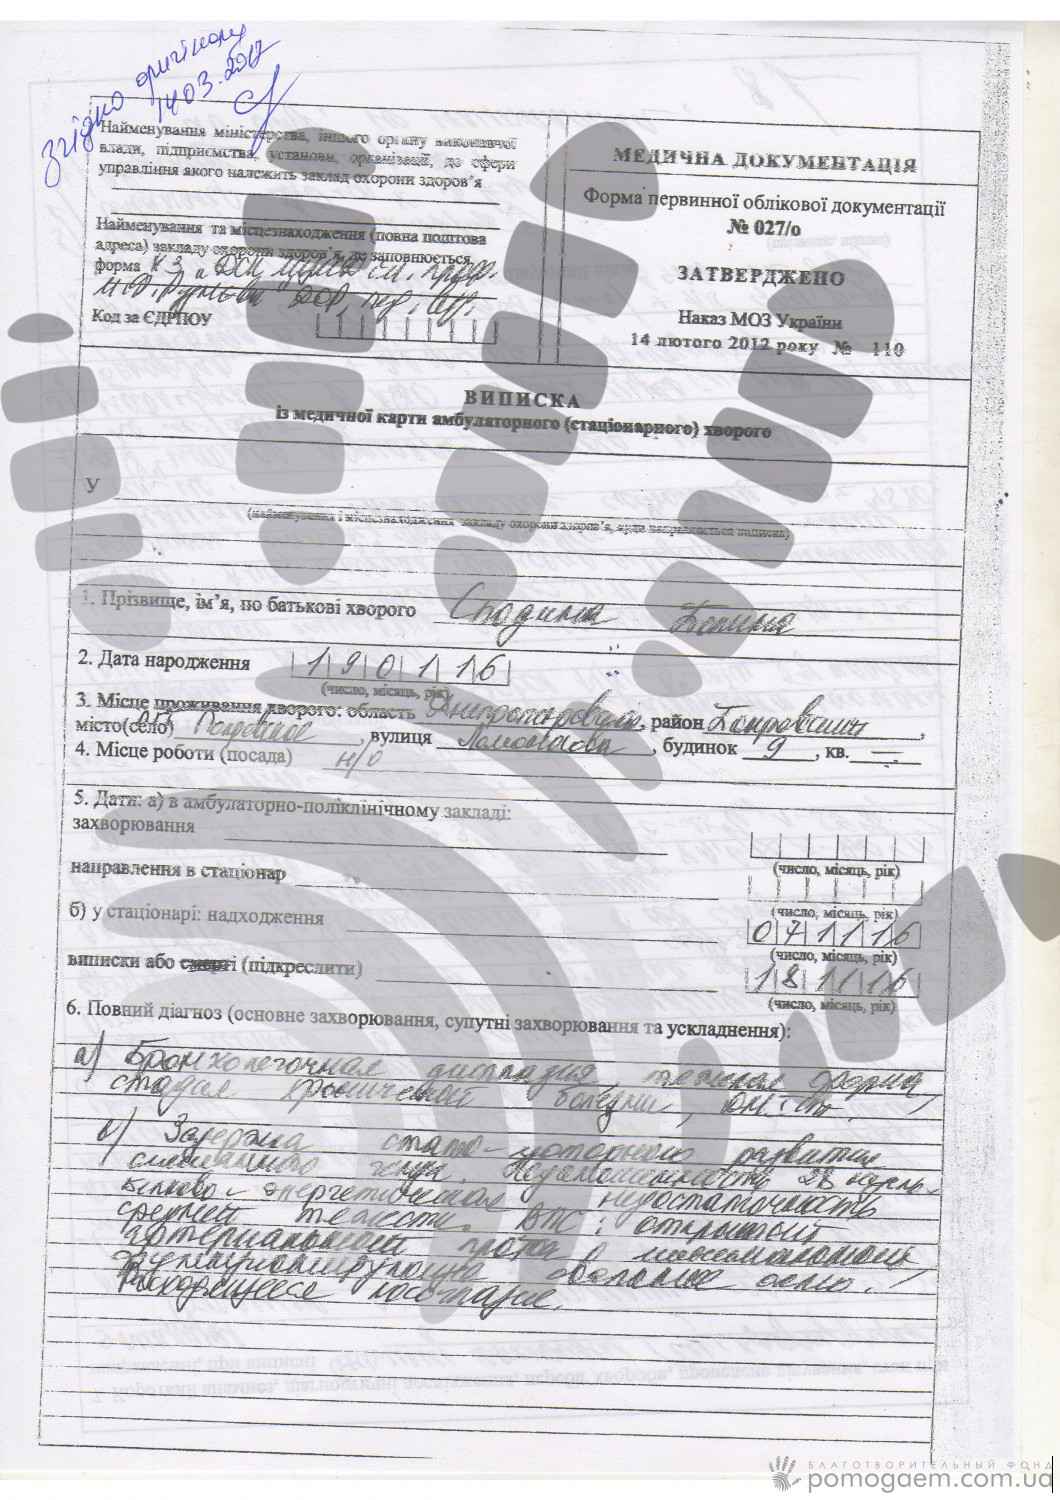 згідно оригіналу
14.03.2017
Найменування міністерства, іншого органу виконавчої
влади, підприємства, установи, організації, до сфери
управління якого належить заклад охорони здоров'я
МЕДИЧНА ДОКУМЕНТАЦІЯ
Форма первинної облікової документації
№ 027/о
ЗАТВЕРДЖЕНО
Наказ МОЗ України
14 лютого 2012 року № 110
Найменування та місцезнаходження (повна поштова
адреса) закладу охорони здоров'я, де заповнюється
форма КЗ
Код за ЄДРПОУ
ВИПИСКА
із медичної карти амбулаторного (стаціонарного) хворого
У
(найменування і місцезнаходження закладу охорони здоров'я, куди направляється виписка)
1. Прізвище, ім'я, по батькові хворого
2. Дата народження 190116
(число, місяць, рік)
3. Місце проживання хворого: область , район ,
місто(село) , вулиця , будинок 9 , кв. —
4. Місце роботи (посада) н/о
5. Дати: а) в амбулаторно-поліклінічному закладі:
захворювання
(число, місяць, рік)
направлення в стаціонар
(число, місяць, рік)
б) у стаціонарі: надходження 071116
(число, місяць, рік)
виписки або смерті (підкреслити) 181116
(число, місяць, рік)
6. Повний діагноз (основне захворювання, супутні захворювання та ускладнення):
а) Бронхолегочная дисплазия тяжелая форма,
стадия хронической болезни,
в) Задержка стато-моторного развития
смешанного генеза. Недоношенность 28 недель.
Белково-энергетическая недостаточность
средней тяжести. ВПС: открытый
артериальный проток
функционирующее овальное окно.
Расходящееся косоглазие.
БЛАГОТВОРИТЕЛЬНЫЙ ФОНД
pomogaem.com.ua